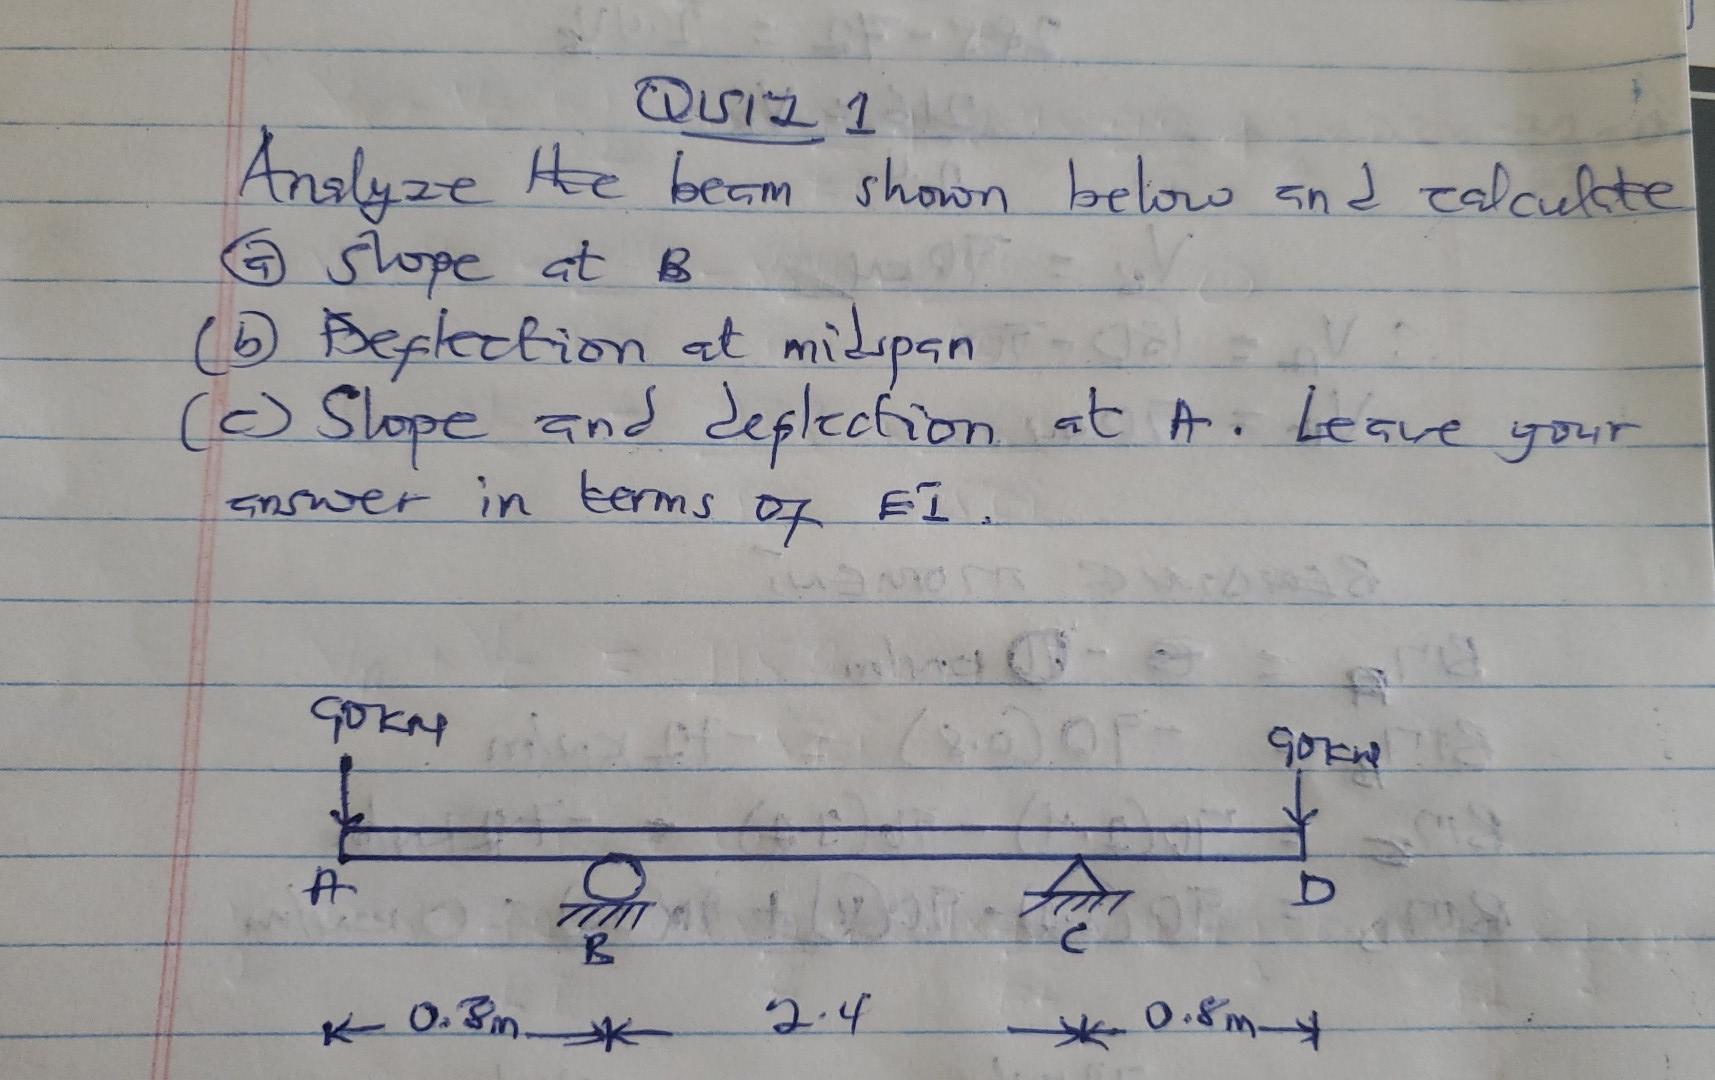 QUIZ 1
Analyze the beam shown below and calculate
(a) slope at B
(b) Deflection at midspan
(c) Slope and deflection at A. Leave your
answer in terms of EI.
90KN
90KN
A
B
C
D
0.8m
2.4
0.8m